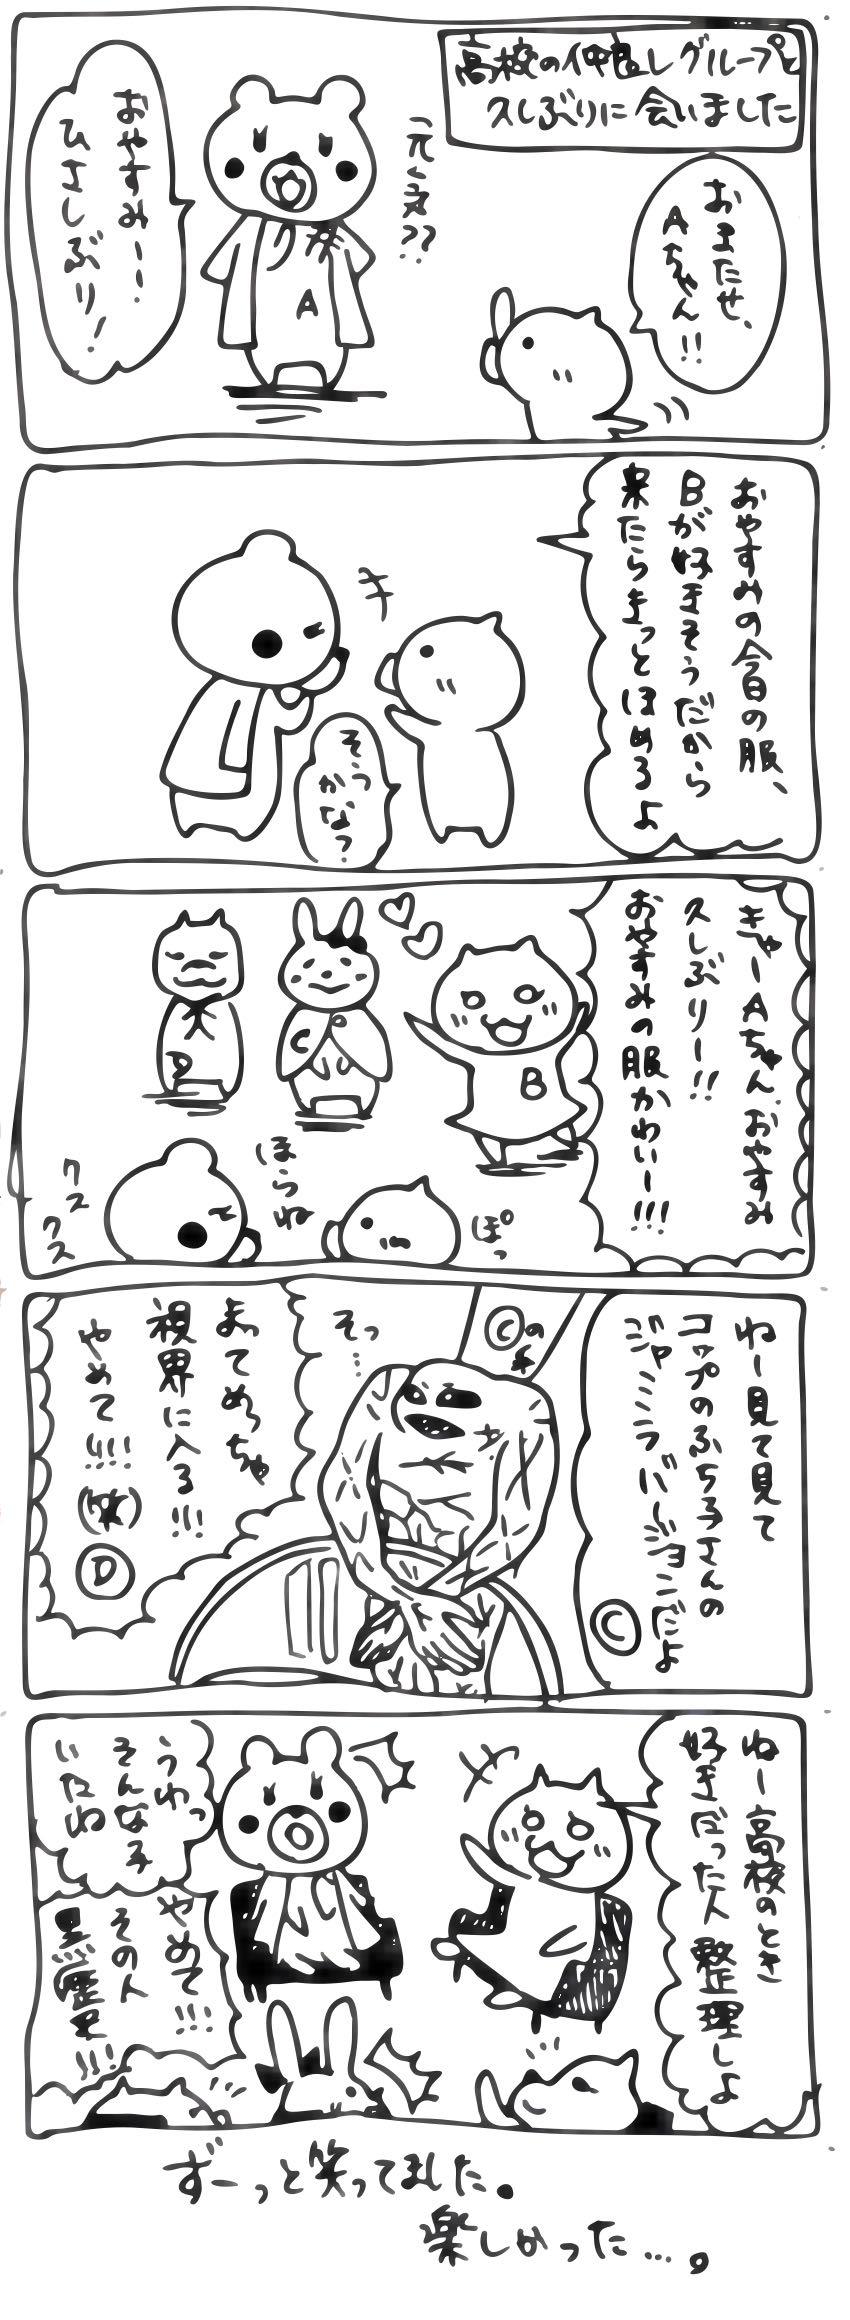 高校の仲良しグループと
久しぶりに会いました
おまたせ、
Aちゃん!!
元気??
おやすみー!
ひさしぶり!
A
おやすみの今日の服、
Bが好きそうだから
来たらきっとほめるよ
そっ
かなっ
きゃーAちゃんおやすみ
久しぶりー!!
おやすみの服かわいー!!!
B
C
D
ぽっ
ほらね
クス
クス
ねー見て見て
コップのふち子さんの
ジャミラバージョンだよ
C
Cの手
そっ…
まってめっちゃ
視界に入る!!!
やめて!!!
(笑)
D
ねー高校のとき
好きだった人整理しよ
うわっ
そんな子
いたね
やめて!!!
その人
黒歴史!!!
ずーっと笑ってました。
楽しかった…。